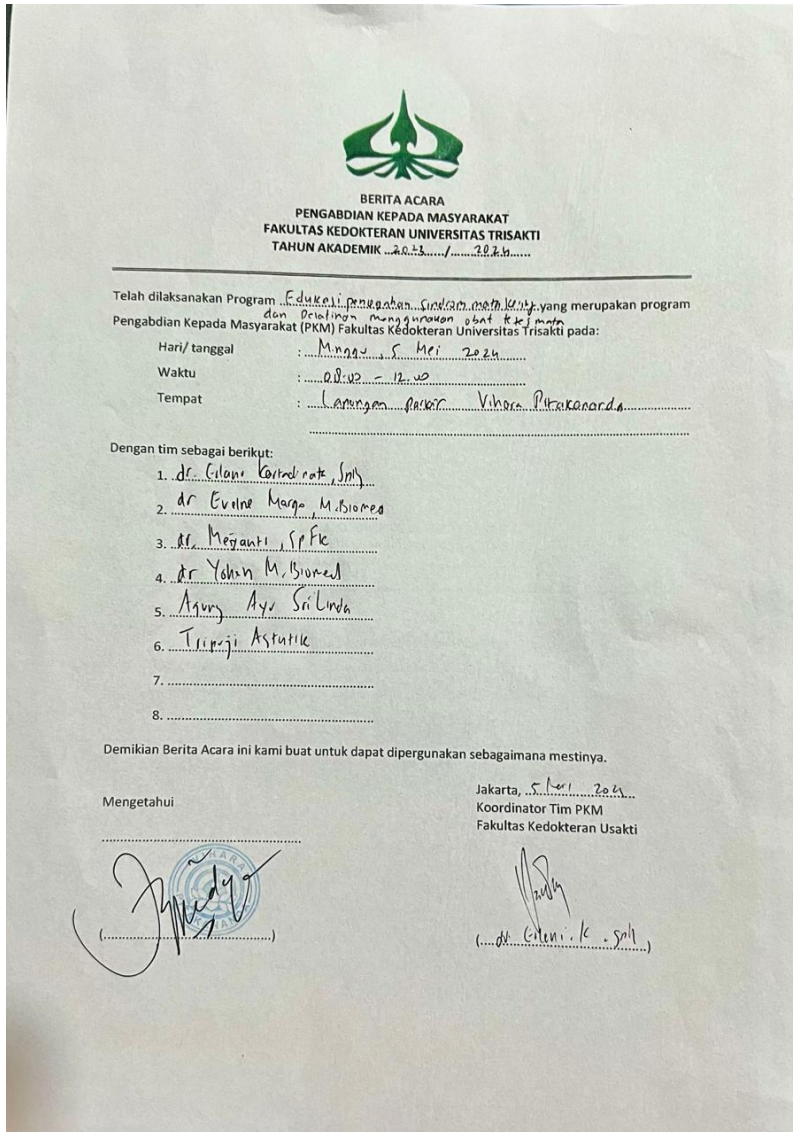 BERITA ACARA
PENGABDIAN KEPADA MASYARAKAT
FAKULTAS KEDOKTERAN UNIVERSITAS TRISAKTI
TAHUN AKADEMIK ..2023...../.......2024......
Telah dilaksanakan Program ..Edukasi pencegahan sindrom mata kering.yang merupakan program
dan Pelatihan menggunakan obat tetes mata
Pengabdian Kepada Masyarakat (PKM) Fakultas Kedokteran Universitas Trisakti pada:
Hari/ tanggal : Minggu, 5 Mei 2024
Waktu : 08.00 - 12.00
Tempat : Lapangan parkir Vihara
Dengan tim sebagai berikut:
1. dr.
2. dr Eveline Margo, M.Biomed
3. dr. Meiyanti, SpFK
4. dr Yohan M.Biomed
5. Agung Ayu Sri Linda
6. Tripuji Astutik
7.
8.
Demikian Berita Acara ini kami buat untuk dapat dipergunakan sebagaimana mestinya.
Jakarta, 5 Mei 2024
Mengetahui
Koordinator Tim PKM
Fakultas Kedokteran Usakti
VIHARA
(.......................................)
(....dr.